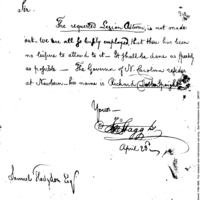 Sir.
The requested Legion Return, is not made
out. We are all so busily employed, that there has been
no leisure to attend to it — It shall be done as speedily
as possible — The Governor of N. Carolina resides
at Newbern — his name is Richard
Yours —
April 23d
Samuel Hodgdon Esqr